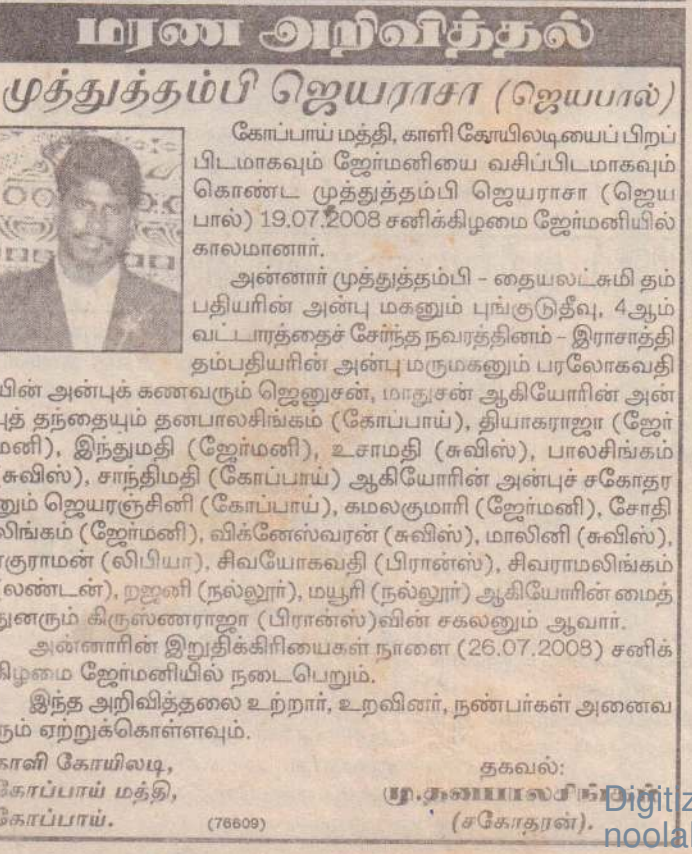 மரண அறிவித்தல்
முத்துத்தம்பி ஜெயராசா (ஜெயபால்)
கோப்பாய் மத்தி, காளி கோயிலடியைப் பிறப்
பிடமாகவும் ஜேர்மனியை வசிப்பிடமாகவும்
கொண்ட முத்துத்தம்பி ஜெயராசா (ஜெய
பால்) 19.07.2008 சனிக்கிழமை ஜேர்மனியில்
காலமானார்.
அன்னார் முத்துத்தம்பி – தையலட்சுமி தம்
பதியரின் அன்பு மகனும் புங்குடுதீவு, 4ஆம்
வட்டாரத்தைச் சேர்ந்த நவரத்தினம் – இராசாத்தி
தம்பதியரின் அன்பு மருமகனும் பரலோகவதி
யின் அன்புக் கணவரும் ஜெனுசன், மாதுசன் ஆகியோரின் அன்
புத் தந்தையும் தனபாலசிங்கம் (கோப்பாய்), தியாகராஜா (ஜேர்
மனி), இந்துமதி (ஜேர்மனி), உசாமதி (சுவிஸ்), பாலசிங்கம்
(சுவிஸ்), சாந்திமதி (கோப்பாய்) ஆகியோரின் அன்புச் சகோதர
னும் ஜெயரஞ்சினி (கோப்பாய்), கமலகுமாரி (ஜேர்மனி), சோதி
லிங்கம் (ஜேர்மனி), விக்னேஸ்வரன் (சுவிஸ்), மாலினி (சுவிஸ்),
ரகுராமன் (லிபியா), சிவயோகவதி (பிரான்ஸ்), சிவராமலிங்கம்
(லண்டன்), றஜனி (நல்லூர்), மயூரி (நல்லூர்) ஆகியோரின் மைத்
துனரும் கிருஸ்ணராஜா (பிரான்ஸ்)வின் சகலனும் ஆவார்.
அன்னாரின் இறுதிக்கிரியைகள் நாளை (26.07.2008) சனிக்
கிழமை ஜேர்மனியில் நடைபெறும்.
இந்த அறிவித்தலை உற்றார், உறவினர், நண்பர்கள் அனைவ
ரும் ஏற்றுக்கொள்ளவும்.
காளி கோயிலடி,
கோப்பாய் மத்தி,
கோப்பாய்.
(76609)
தகவல்:
மு.தனபாலசிங்கம்
(சகோதரன்).